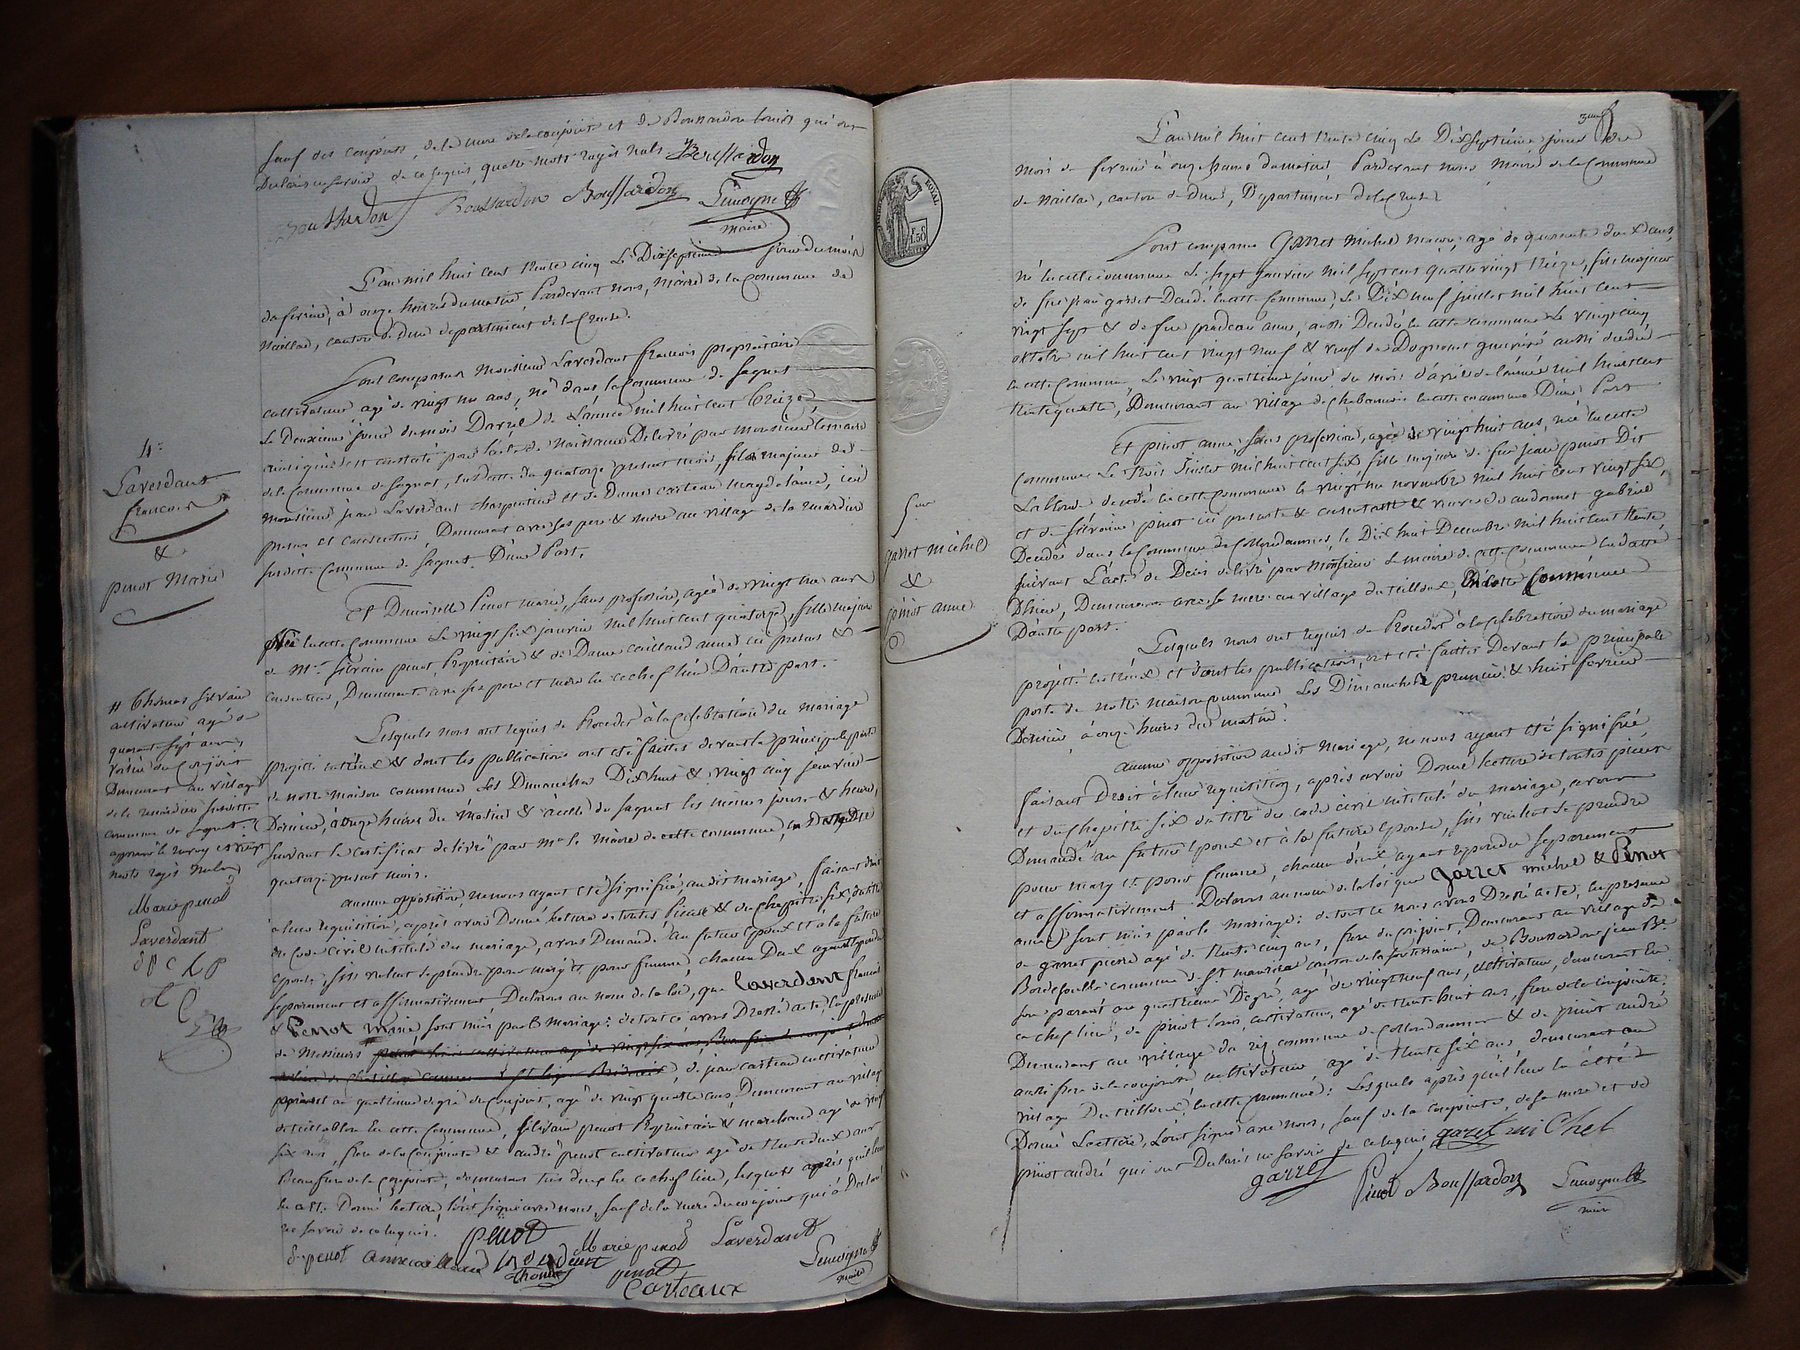 sauf des conjoints, de la mere de la conjointe et de Boussardon louis qui ont
Declaré ne savoir de ce requis, quatre mots rayés nuls Boussardon
Boussardon Boussardon Boussardon
maire
L'an mil huit cent trente cinq Le Dixseptieme jour du mois
de fevrier, à onze heures du matin, Pardevant nous, Maire de la Commune de
Naillat, canton de Dun departement de la Creuse.
Sont comparus Monsieur Laverdant francois proprietaire
cultivateur agé de vingt un ans, né dans la Commune de Sagnat
Le Deuxieme jour du mois D'avril de L'année mil huit cent treize
ainsi qu'il est constaté par l'acte de Naissance Delivré par Monsieur le maire
de la Commune de Sagnat, en datte du quatorze present mois, fils majeur de
Monsieur jean Laverdant charpentier et de Dame carteau magdelaine, ici
presens et consentans, Demeurant avec ses pere & mere au village de la
susditte Commune de Sagnat. D'une Part.
Et Demoiselle Penot marie, sans profession, agée de vingt un ans
Née en cette Commune Le vingt six janvier mil huit cent quatorze, fille majeure
de Mr. silvain penot, Proprietaire & de Dame caillaud anne ici presens &
consentans, Demeurant avec ses pere et mere en ce chef lieu D'autre part.
Lesquels nous ont requis de Proceder à la celebration du mariage
projetté entr'eux & dont les publications ont été faittes devant la principale porte
de notre maison commune les Dimanches Dix huit & vingt cinq janvier
Dernier, à onze heures du matin & à celle de Sagnat les mêmes jours & heure,
suivant le certificat delivré par Mr le Maire de cette commune, en datte du
quatorze present mois.
aucune opposition ne nous ayant été signifiée audit mariage, faisant droit
à leur requisition, après avoir Donné lecture de toutes Pieces & du chapitre six, du titre
du Code civil intitulé du mariage, avons Demandé au futur epoux et à la future
epouse, s'ils veulent se prendre pour mary et pour femme, chacun D'eux ayant repondu
separement et affirmativement Declarons au nom de la loi, que Laverdant francois
& Penot marie, sont unis par le mariage: de tout ce avons Dressé acte, en presence
de Messieurs
, de jean carteau cultivateur
parent au quatrieme degré du conjoint, agé de vingt quatre ans, Demeurant au village
en cette Commune, silvain penot Proprietaire & marchand agé de vingt
six ans, frere de la conjointe & andré penot cultivateur agé de trente deux ans
Beaufrere de la conjointe, demeurans tous deux en ce chef lieu, lesquels après qu'il leur
en a été Donné lecture, l'ont signé avec nous, sauf de la mere du conjoint qui a Declaré
ne savoir de ce requis.
penot Marie penot Laverdant
penot anne caillaud
thomas penot
Carteaux
maire
4e
Laverdant
francois
&
penot Marie
# thomas silvain
cultivateur agé de
quarante sept ans,
voisin du Conjoint
Demeurant au village
susditte
commune de Sagnat.
approuvé le renvoy et vingt
mots rayés nuls
Marie penot
Laverdant
ROYAL
1.50
5eme
garret michel
&
pinot anne
L'an mil huit cent trente cinq Le Dixseptieme jour du
mois de fevrier à onze heures du matin, Pardevant nous Maire de la Commune
de Naillat, canton de Dun, Departement de la Creuse
Sont comparus Garret Michel macon, agé de quarante deux ans,
né en cette commune Le sept janvier mil sept cent quatre vingt treize, fils majeur
de feu jean garret Decedé en cette Commune, Le Dix neuf juillet mil huit cent
vingt sept & de feue pradeau anne, aussi Decedée en cette commune Le vingt cinq
octobre mil huit cent vingt neuf & veuf de aussi decedée
en cette Commune, Le vingt quatrieme jour du mois d'avril de l'année mil huit cent
trente quatre, Demeurant au village de en cette commune D'une Part
Et pinot anne sans profession, agée de vingt huit ans, née en cette
Commune Le trois Juillet mil huit cent six, fille majeure de feu jean pinot Dit
decedé en cette commune le vingt un novembre mil huit cent vingt six,
et de silvaine pinot ici presente & consentante & veuve de audonnet gabriel
Decedé dans la Commune de Collondannes, le Dix huit Decembre mil huit cent trente
suivant L'acte de Décès delivré par Monsieur le maire de cette commune en datte
D'hier, Demeurant avec sa mere au village du teilloux, En cette Commune
D'autre part.
Lesquels nous ont requis de Proceder à la celebration du mariage
projetté entr'eux et dont les publications, ont été faittes Devant la principale
porte de notre maison commune les Dimanches premier & huit fevrier
Dernier, à onze heures du matin.
aucune opposition audit mariage, ne nous ayant été signifiée
faisant Droit à leur requisition, après avoir Donné lecture de toutes pieces
et du chapitre six du titre du code civil intitulé du mariage, avons
Demandé au futur epoux et à la future epouse, s'ils veulent se prendre
pour mary et pour femme, chacun d'eux ayant repondu separement
et affirmativement Declarons au nom de la loi que Garret michel & Penot
anne sont unis par le mariage: de tout ce nous avons Dressé acte, en presence
de garret pierre agé de trente cinq ans, frere du conjoint, Demeurant au village de
Bordesoulle commune de St maurice canton de la souterraine, de Boussardon jean Bte
son parent au quatrieme Degré, agé de vingt neuf ans, cultivateur, demeurant en
ce chef lieu, de pinot louis, cultivateur, agé de trente huit ans, frere de la conjointe,
Demeurant au village du riz commune de Collondannes & de pinot andré
aussi frere de la conjointe cultivateur agé de trente six ans, demeurant au
village Du teilloux, en cette Commune; Lesquels après qu'il leur en a été
Donné Lecture, L'ont signé avec nous, sauf de la conjointe, de sa mere et de
pinot andré qui ont Declaré ne savoir de ce requis garet miChel
garret Pinot Boussardon
maire